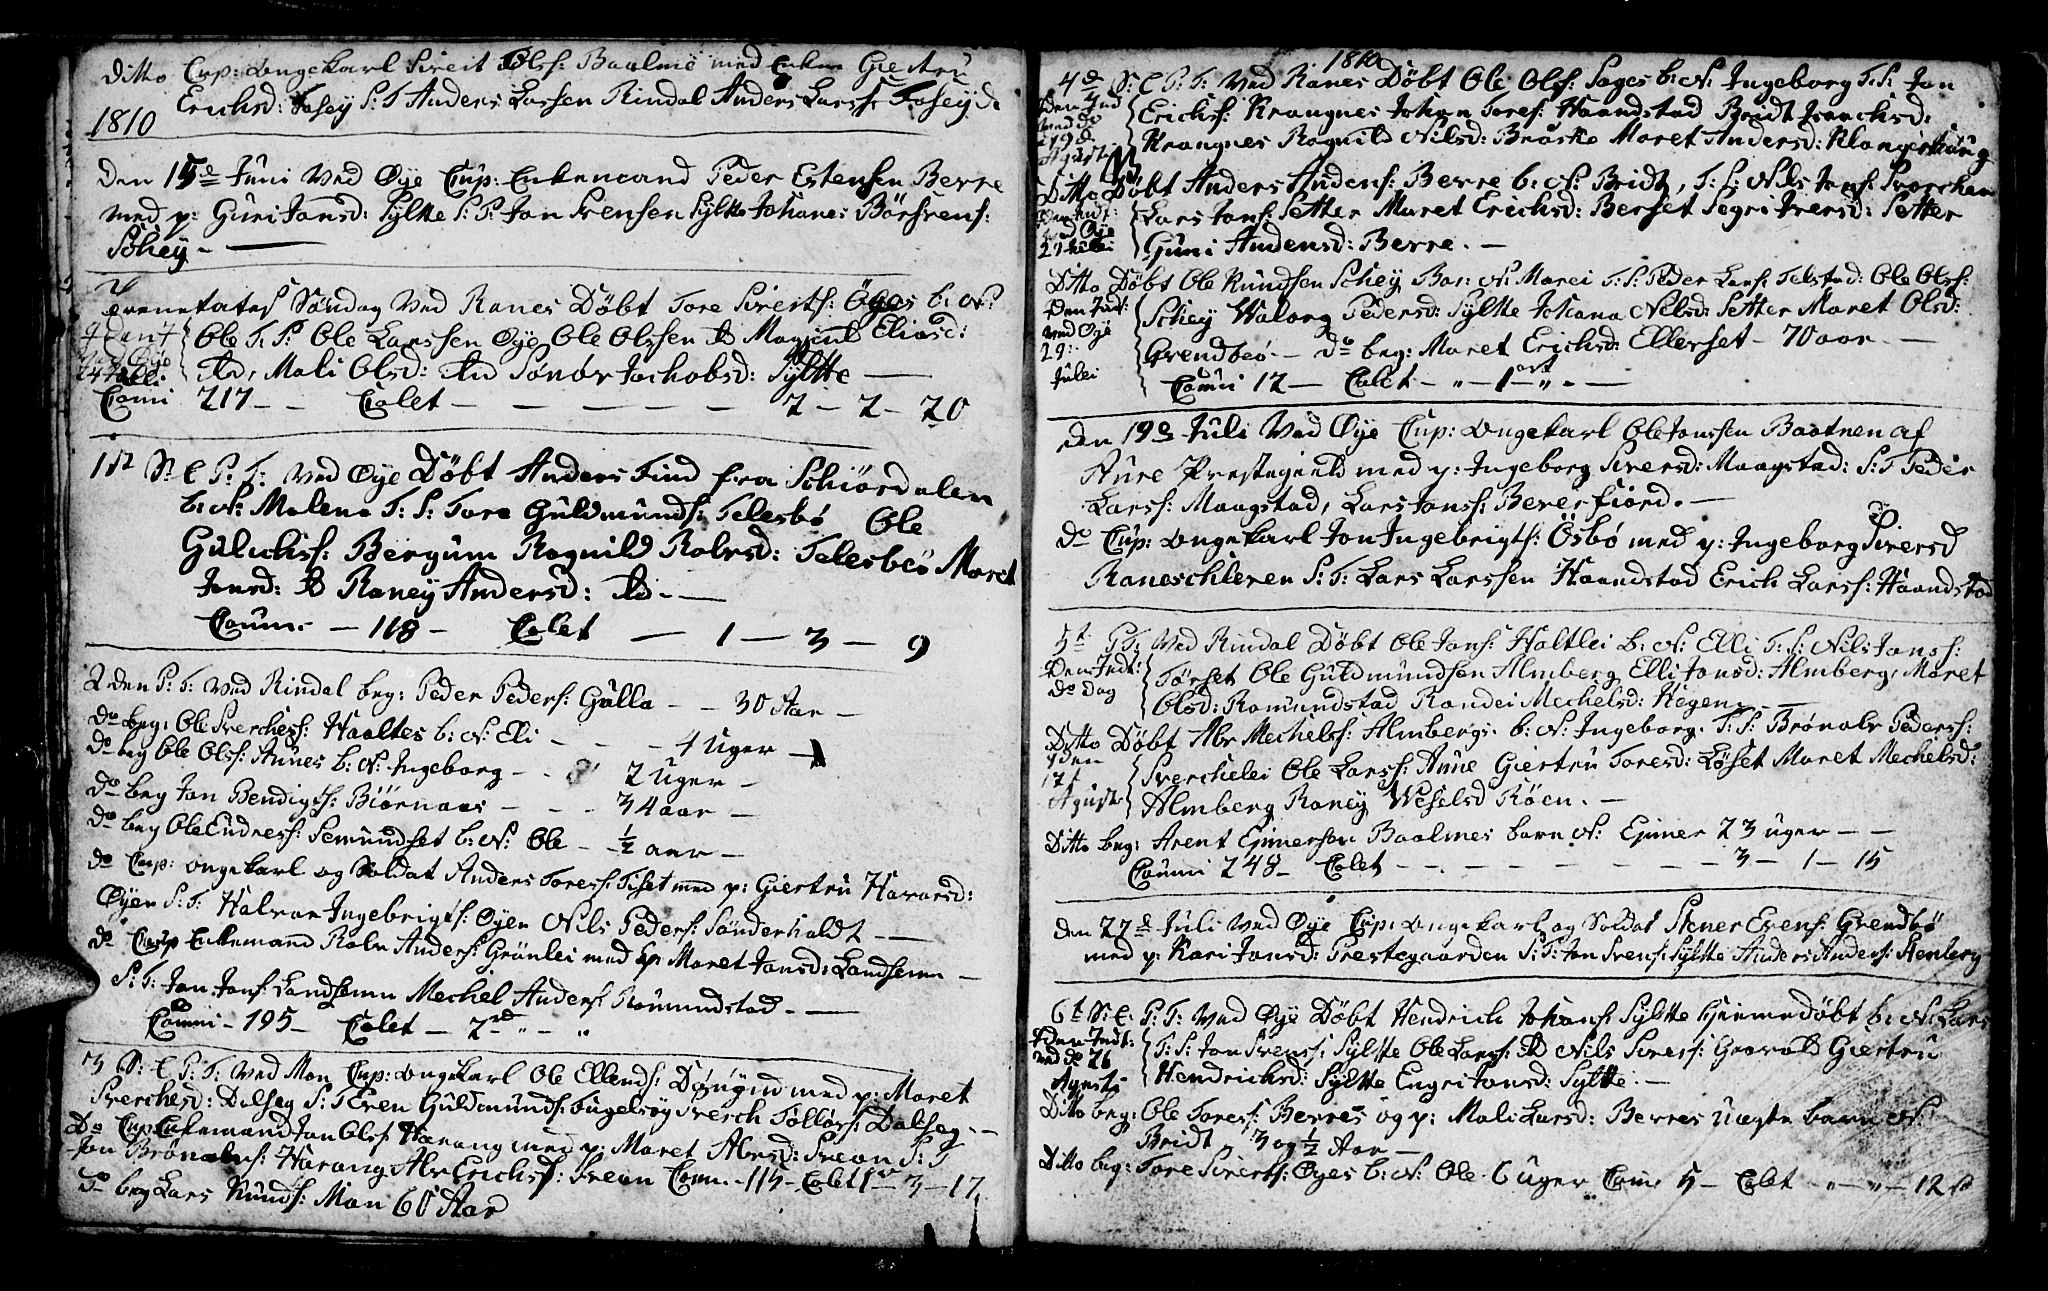 Ditto Cup: Ungekarl Sivert Olss: Baalme med Enken Giertru
Erichsd: Fosey S: T Anders Larsen Rindal Anders Larss: Foseyd:
1810
Den 15de Juni Ved Øye Cup: Enkemand Peder Estensen Berre
med p: Guri Jansd: Sylte S: T: Jan Svensen Sylte Johanes Børsvens:
Schey
Søndag Ved Ranes Döbt Tore Sivertss: Öyes b: N:
Ole F: S: Ole Larssen Øye Ole Olssen do Magnil Eliasd:
do, Mali Olsd: do Sønov Jachobsd: Syltte
Comi 217 - - Colet - - - - - - 2 - 2 - 20
1st S: E P: T: Ved Øye Döbt Anders Find fra Schiørdalen
b: N: Malena F: S: Tore Guldmunds: Telesbø Ole
Gulichs: Bergum Rognild Rolvsd: Telesbø Maret
Jansd: do Raney Andersd: do. -
Coum. - 118 - Colet - 1 - 3 - 9
2den P: T: Ved Rindal beg: Peder Peders: Gulla - - 30 Aar -
do beg: Ole Sverchess: Haaltes b: N: Eli - - - 4 Uger -
do beg Ole Olss: Aunes b: N: Ingeborg - - 2 Uger -
do beg Jan Bendigts: Biørnaas - - - 34 aar -
do beg Ole Endress: Semundset b: N: Ole - - ½ aar -
do Cup: Ungekarl og Soldat Anders Toress: Tiset med p: Giertru Havarsd:
Øyen S: T: Halvar Ingebrigts: Øyen Nils Peders: Sønderholdt -
do Cup Enkemand Rolv Anders: Grönlei med p: Maret Jansd: Landsemn -
S: T: Jan Jans: Landsemn Mechel Anders: Romundstad. -
Coumi - 195 - Colet - 2 - " - "
3 S: E P: T: Ved Moe Cup: Ungekarl Ole Ellends: Dønynd med p: Maret
Sverchesd: Dalseg S: T Even Guldmunds: Fugelsøy Sverch Tølløss: Dalseg. -
Do Cup Enkemand Jan Olss Harang med p: Maret Alvsd: Svean S: T
Jan Brønels: Harang Alv Erichs: Svean Com. - 115 - Colet 1 - 3 - 17
do beg Lars Knuds: Moe 60 Aar
1810
4de S: E P: T: Ved Ranes Döbt Ole Olss: Sages b: N: Ingeborg F: S: Jan
Erichss: Krangnes Johan Tores: Haandstad Bridt Jsaachsd:
Krangnes Rognild Nilsd: Bröske Maret Andersd: Klangerhaug
Den Ind
med do
19de
Agust
Ditto Döbt Anders Andens: Berre b: N: Bridt, F: S: Nils Jans: Svorchem
Lars Jans: Setter Maret Erichsd: Berset Segri Iversd: Setter
Guni Andensd: Berre. -
Den Indt:
ved Øye
29 Julei
Ditto Döbt Ole Knudsen Schey Bar: N: Marei F: S: Peder Lars: Telstad: Ole Olss:
Schey Walorg Pedersd: Syltte Johana Nilsd: Setter Maret Olsd:
Grendbeö. - do beg: Maret Erichsd: Ellerset - 70 aar. -
Den Indt:
ved Øye
29:
Julei
Comi 12 - Colet - " - 1ort " - -
Den 19de Juli Ved Øye Cup: Ungekarl Ole Janssen Baatnen af
Aure Prestegield med p: Ingeborg Siversd: Maagstad: S: T Peder
Larss: Maagstad, Lars Janss: Beverfiord. -
do Cup: Ungekarl Jan Ingebrigts: Ösbø med p: Ingeborg Siversd
Raneschleven S: T: Lars Larssen Haandstad Erich Larss: Haandstad
5te P T: Ved Rindal Döbt Ole Jans: Haltlei b: N: Elli F: S: Nils Janss:
Tørset Ole Guldmundsen Almberg Elli Jansd: Almberg, Maret
Olsd: Romundstad Randei Mechelsd: Hegen. -
Den Indt:
do Dag
Ditto Döbt Alv Mechelss: Almbergs: b: N: Ingeborg. F: S: Brønalv Pederss:
Sverchelei Ole Larss: Aune Giertru Toresd: Löset Maret Mechelsd:
Almberg Raney Weselsd Röen. -
Agust
Ditto beg: Arent Ejnersen Baalmes barn N: Ejner 23 uger - -
Coumi 248 - Colet - - - - - - - 3 - 1 - 15
Den 27de Juli Ved Øye Cup: Ungekarl og Soldat Stener Evens: Grendbö
med p: Kari Jansd: Prestegaarden S: T: Jan Svens: Syltte Anders Anders: Stenberg
6te S: E: P: T: Ved Øye Döbt Hendrich Johans: Syltte hjemmedöbt b: N: Lars
F: S: Jan Svenss: Syltte Ole Larss: do Nils Sivers: Gaavold Giertru
Hendrichsd: Syltte Engri Jansd: Syltte. -
Den Indt:
med do 26
Agusti
Ditto beg: Ole Toress: Berres og p: Mali Larsd: Berres Uægte barn N:
Bridt - 3 og ½ Aar -
Ditto beg: Tore Siverts: Øyes b: N: Ole 6 uger Com: 5 - Colet - " - " - 12 s